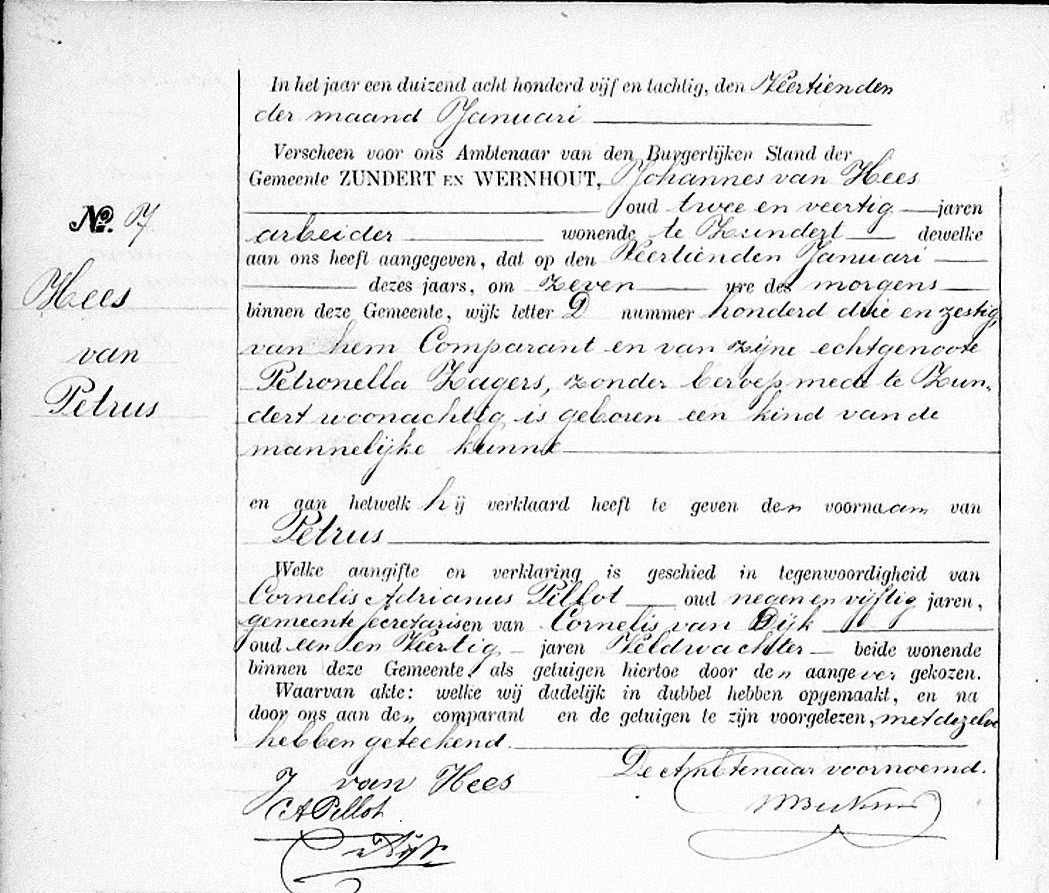 In het jaar een duizend acht honderd vijf en tachtig, den Veertienden
der maand Januari
Verscheen voor ons Ambtenaar van den Burgerlijken Stand der
Gemeente ZUNDERT EN WERNHOUT, Johannes van Hees
oud twee en veertig jaren
No. 7
arbeider wonende te Zundert dewelke
aan ons heeft aangegeven, dat op den Veertienden Januari
Hees
dezes jaars, om zeven ure des morgens
binnen deze Gemeente, wijk letter D nummer honderd drie en zestig,
van
van hem Comparant en van zijne echtgenoote
Petrus
Petronella Zagers, zonder beroep mede te Zun-
dert woonachtig is geboren een kind van de
mannelijke kunne
en aan hetwelk hij verklaard heeft te geven den voornaam van
Petrus
Welke aangifte en verklaring is geschied in tegenwoordigheid van
Cornelis Adrianus Pillot oud negen en vijftig jaren,
gemeente secretaris en van Cornelis van Dijk
oud een en Veertig jaren Veldwachter beide wonende
binnen deze Gemeente, als getuigen hiertoe door den aangever gekozen.
Waarvan akte: welke wij dadelijk in dubbel hebben opgemaakt, en na
door ons aan den comparant en de getuigen te zijn voorgelezen, met dezelve
hebben geteekend.
De Ambtenaar voornoemd.
J van Hees
CA Pillot
v Dijk